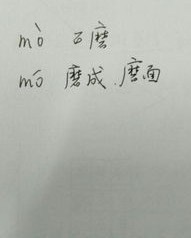 mò 石磨
mó 磨成、磨面